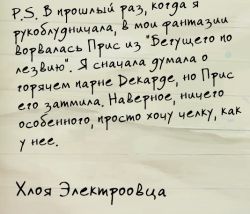 P.S. В прошлый раз, когда я
рукоблудничала, в мои фантазии
ворвалась Прис из "Бегущего по
лезвию". Я сначала думала о
горячем парне Декарде, но Прис
его затмила. Наверное, ничего
особенного, просто хочу челку, как
у нее.
Хлоя Электроовца